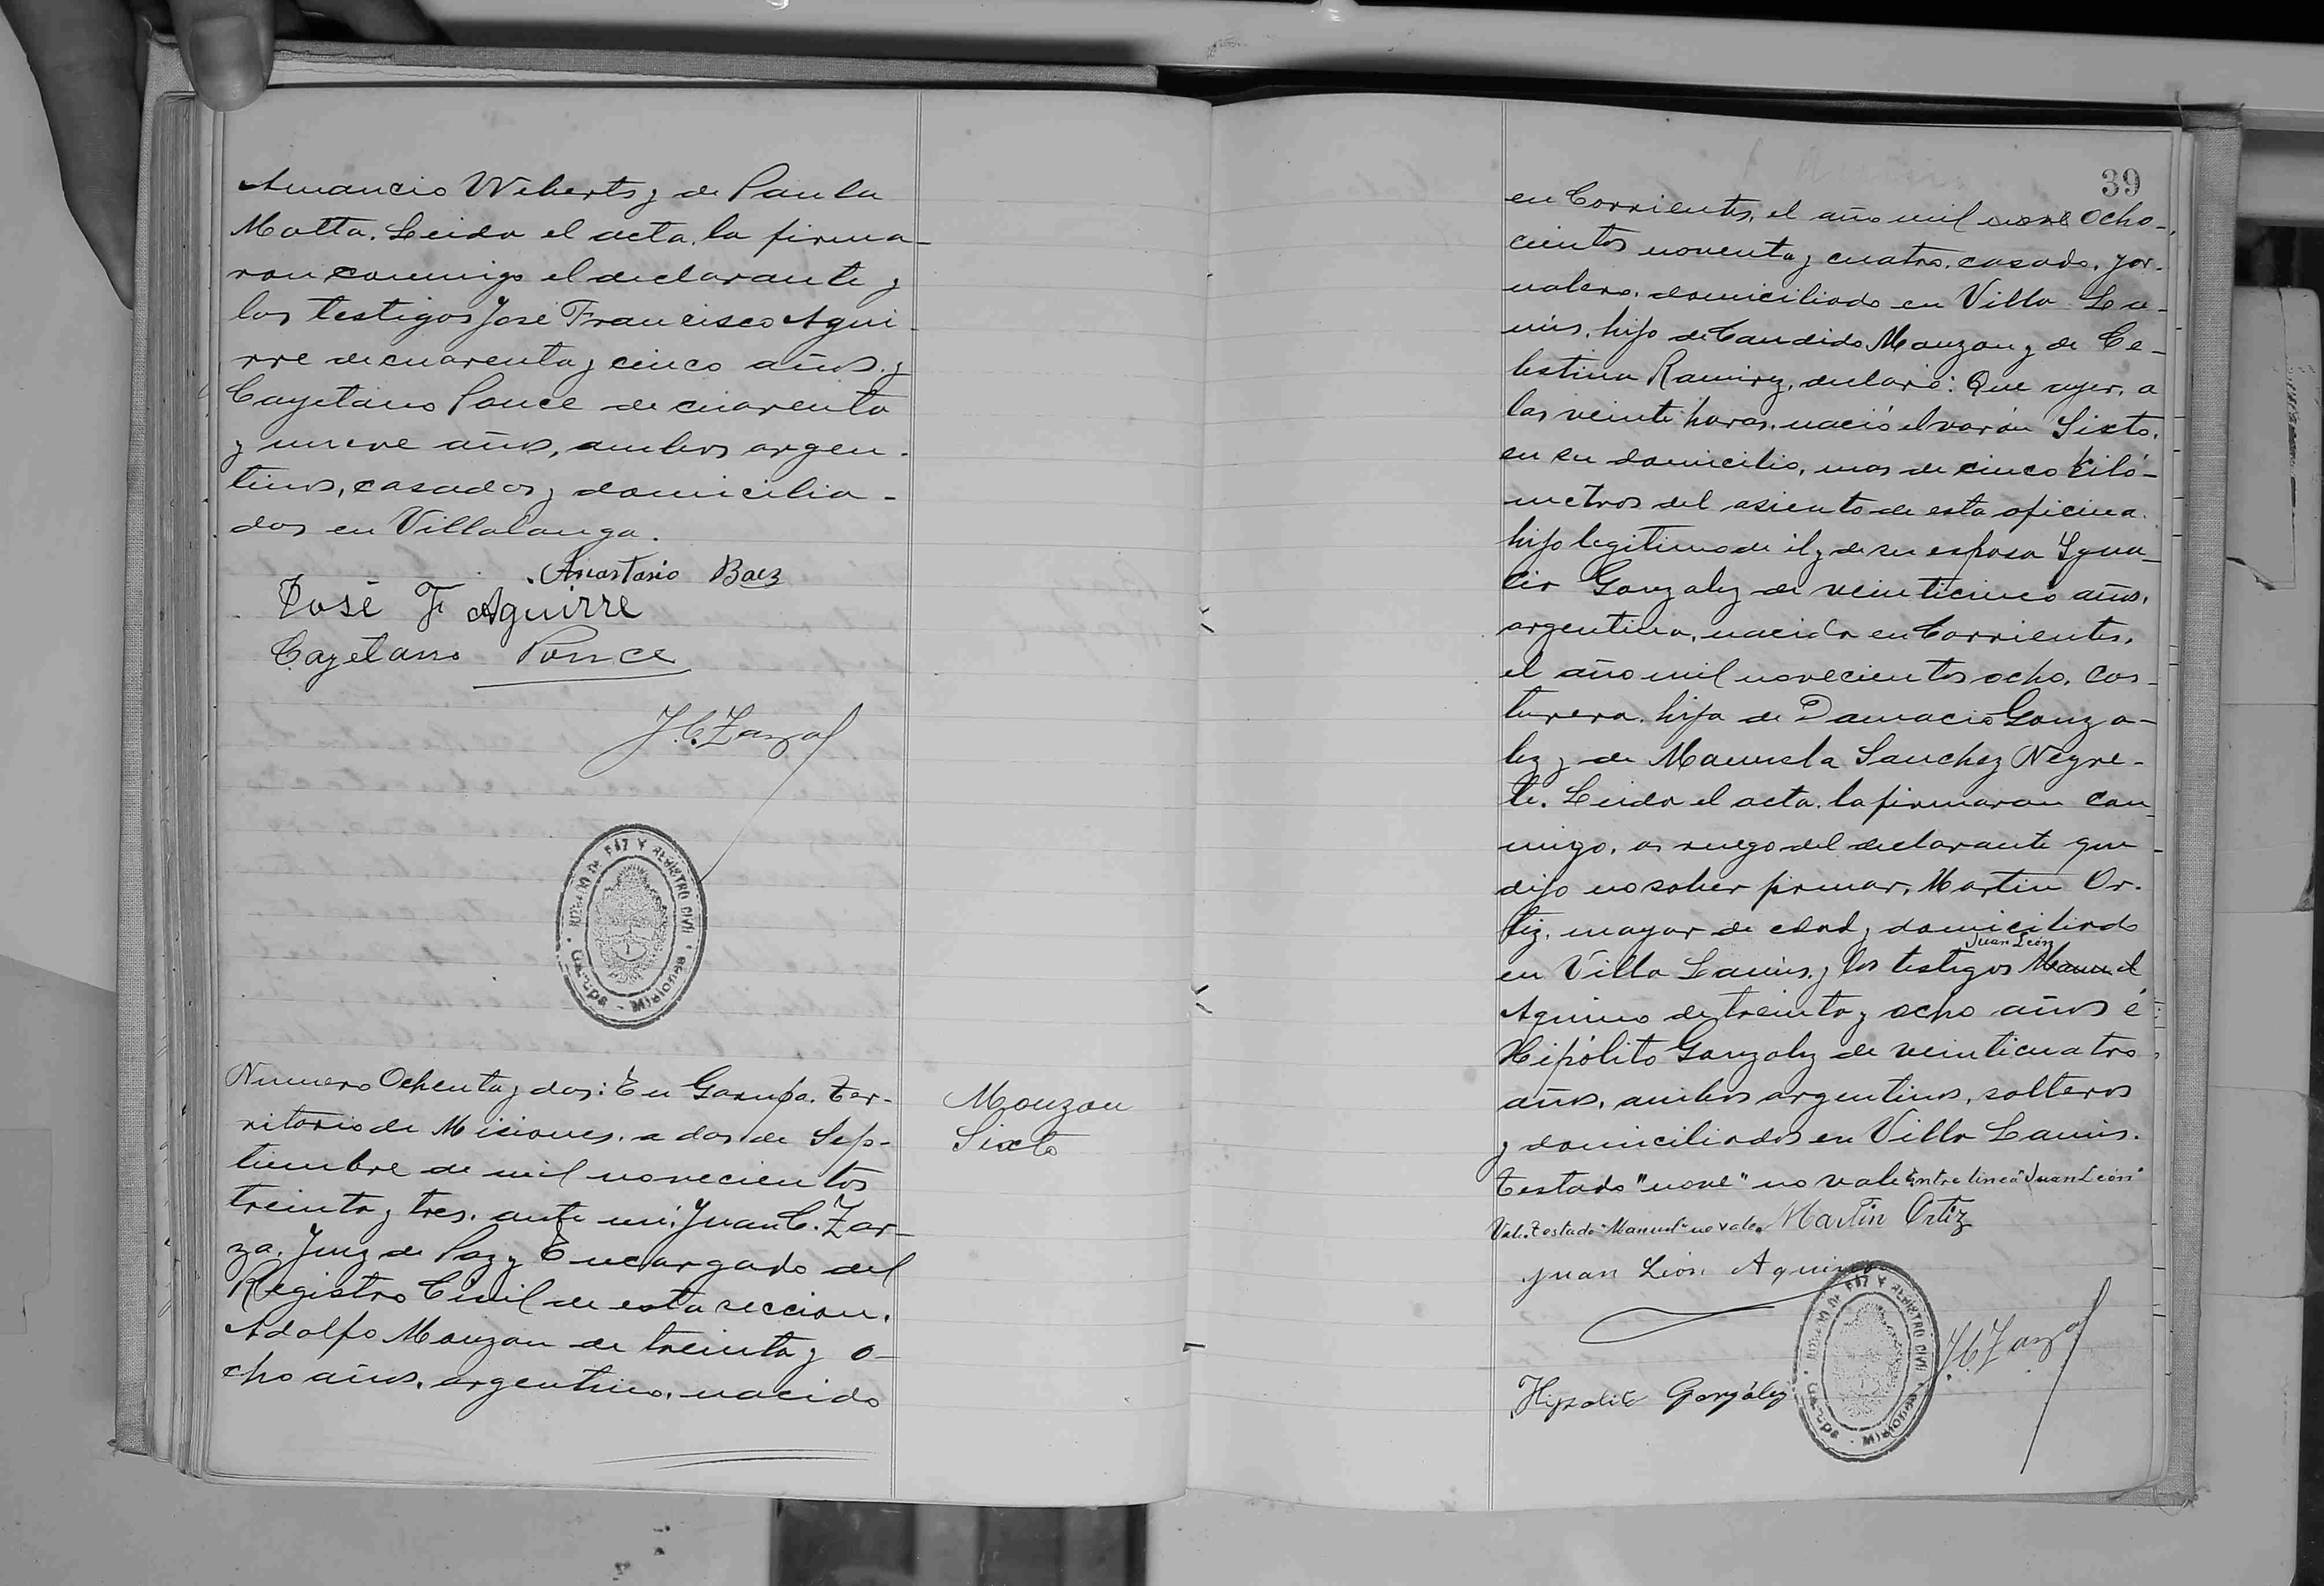 Amancio Weberts y de Paula
Motta. Leida el acta, la firma-
ron conmigo el declarante y
los testigos José Francisco Agui-
rre de cuarenta y cinco años y
Cayetano Ponce de cuarenta
y nueve años, ambos argen-
tinos, casados y domicilia-
dos en Villalonga.
Anastasio Baez
José F Aguirre
Cayetano Ponce
J.C. Zarza
JUZGADO DE PAZ Y REGISTRO CIVIL
Numero Ochenta y dos: En Garupa, Ter-
ritorio de Misiones, a dos de Sep-
tiembre de mil novecientos
treinta y tres, ante mí, Juan C. Zar-
za, Juez de Paz y Encargado del
Registro Civil de esta seccion,
Adolfo Monzon de treinta y o-
cho años, argentino, nacido
Monzon
Sixto
39
en Corrientes, el año mil nove ocho-
cientos noventa y cuatro, casado, jor-
nalero, domiciliado en Villa La-
nús, hijo de Candido Monzon y de Ce-
lestina Ramirez, declaró: Que ayer, a
las veinte horas, nació el varón Sixto,
en su domicilio, mas de cinco kiló-
metros del asiento de esta oficina,
hijo legitimo de él y de su esposa Igna-
cia Gonzalez de veinticinco años,
argentina, nacida en Corrientes,
el año mil novecientos ocho, cos-
turera, hija de Damacio Gonza-
lez y de Manuela Sanchez Negre-
te. Leida el acta, la firmaron con-
migo, a ruego del declarante que
dijo no saber firmar, Martin Or-
tiz, mayor de edad y domiciliado
Juan León
en Villa Lanús, y los testigos Manuel
Aquino de treinta y ocho años é
Hipólito Gonzalez de veinticuatro
años, ambos argentinos, solteros
y domiciliados en Villa Lanús.
Testado "nove" no vale Entre linea "Juan León"
Vale. Testado "Manuel" no vale. Martin Ortiz
Juan León Aquino
J.C. Zarza
Hipolito González
JUZGADO DE PAZ Y REGISTRO CIVIL